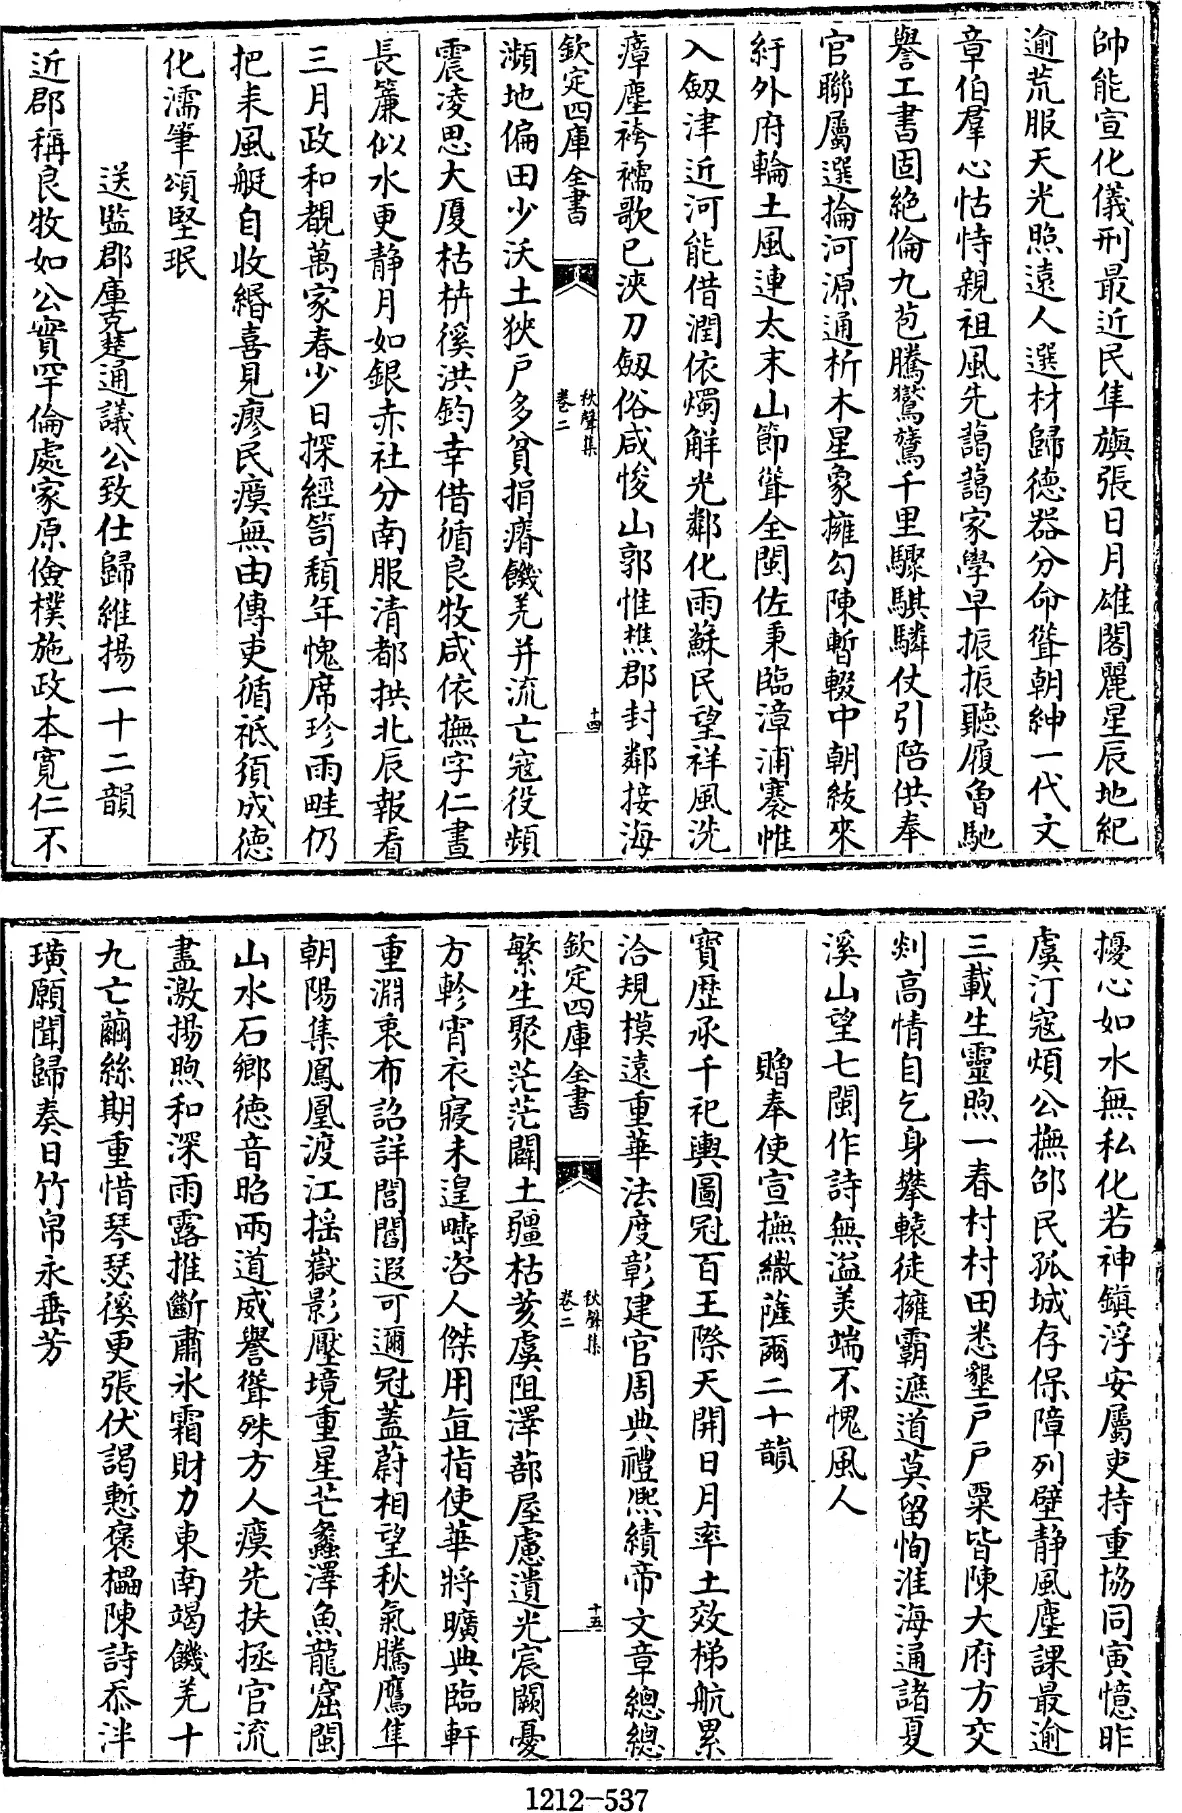 帥能宣化儀刑最近民隼旟張日月雄閣麗星辰地紀
逾荒服天光照遠人選材歸徳器分命聳朝紳一代文
章伯羣心怙恃親祖風先藹藹家學早振振聽履曾馳
譽工書固絶倫九苞騰鸑鷟千里驟騏驎仗引陪供奉
官聯屬選掄河源通析木星象擁勾陳暫輟中朝紱來
紆外府輪土風連太末山節聳全閩佐秉臨漳浦褰帷
入劒津近河能借潤依燭觧光鄰化雨蘇民望祥風洗
瘴塵袴襦歌已浹刀劒俗咸悛山郭惟樵郡封鄰接海
欽定四庫全書
秋聲集
卷二
十四
瀕地偏田少沃土狹戸多貧捐瘠饑羌并流亡寇役頻
震凌思大厦枯枿徯洪鈞幸借循良牧咸依撫字仁晝
長簾似水更静月如銀赤社分南服清都拱北辰報看
三月政和覩萬家春少日探經笥頽年愧席珍雨畦仍
把耒風艇自收緡喜見瘳民瘼無由傳吏循祗須成徳
化濡筆頌堅珉
送監郡庫克楚通議公致仕歸維揚一十二韻
近郡稱良牧如公實罕倫處家原儉樸施政本寛仁不
擾心如水無私化若神鎮浮安屬吏持重協同寅憶昨
虞汀寇煩公撫邵民孤城存保障列壁静風塵課最逾
三載生靈煦一春村村田悉墾戸戸粟皆陳大府方交
剡高情自乞身攀轅徒擁霸遮道莫留恂淮海通諸夏
溪山望七閩作詩無溢美端不愧風人
贈奉使宣撫繖薩爾二十韻
寳歴承千祀輿圖冠百王際天開日月率土效梯航累
洽規模遠重華法度彰建官周典禮熙績帝文章總總
欽定四庫全書
秋聲集
卷二
十五
繁生聚茫茫闢土疆枯荄虞阻澤蔀屋慮遺光宸闕憂
方軫宵衣寢未遑疇咨人傑用直指使華將曠典臨軒
重淵衷布詔詳閭閻遐可邇冠蓋蔚相望秋氣騰鷹隼
朝陽集鳳凰渡江揺嶽影壓境重星芒蠡澤魚龍窟閩
山水石鄉徳音昭兩道威譽聳殊方人瘼先扶拯官流
盡激揚煦和深雨露推斷肅氷霜財力東南竭饑羌十
九亡繭絲期重惜琴瑟徯更張伏謁慙褒韞陳詩忝泮
璜願聞歸奏日竹帛永垂芳
1212-537